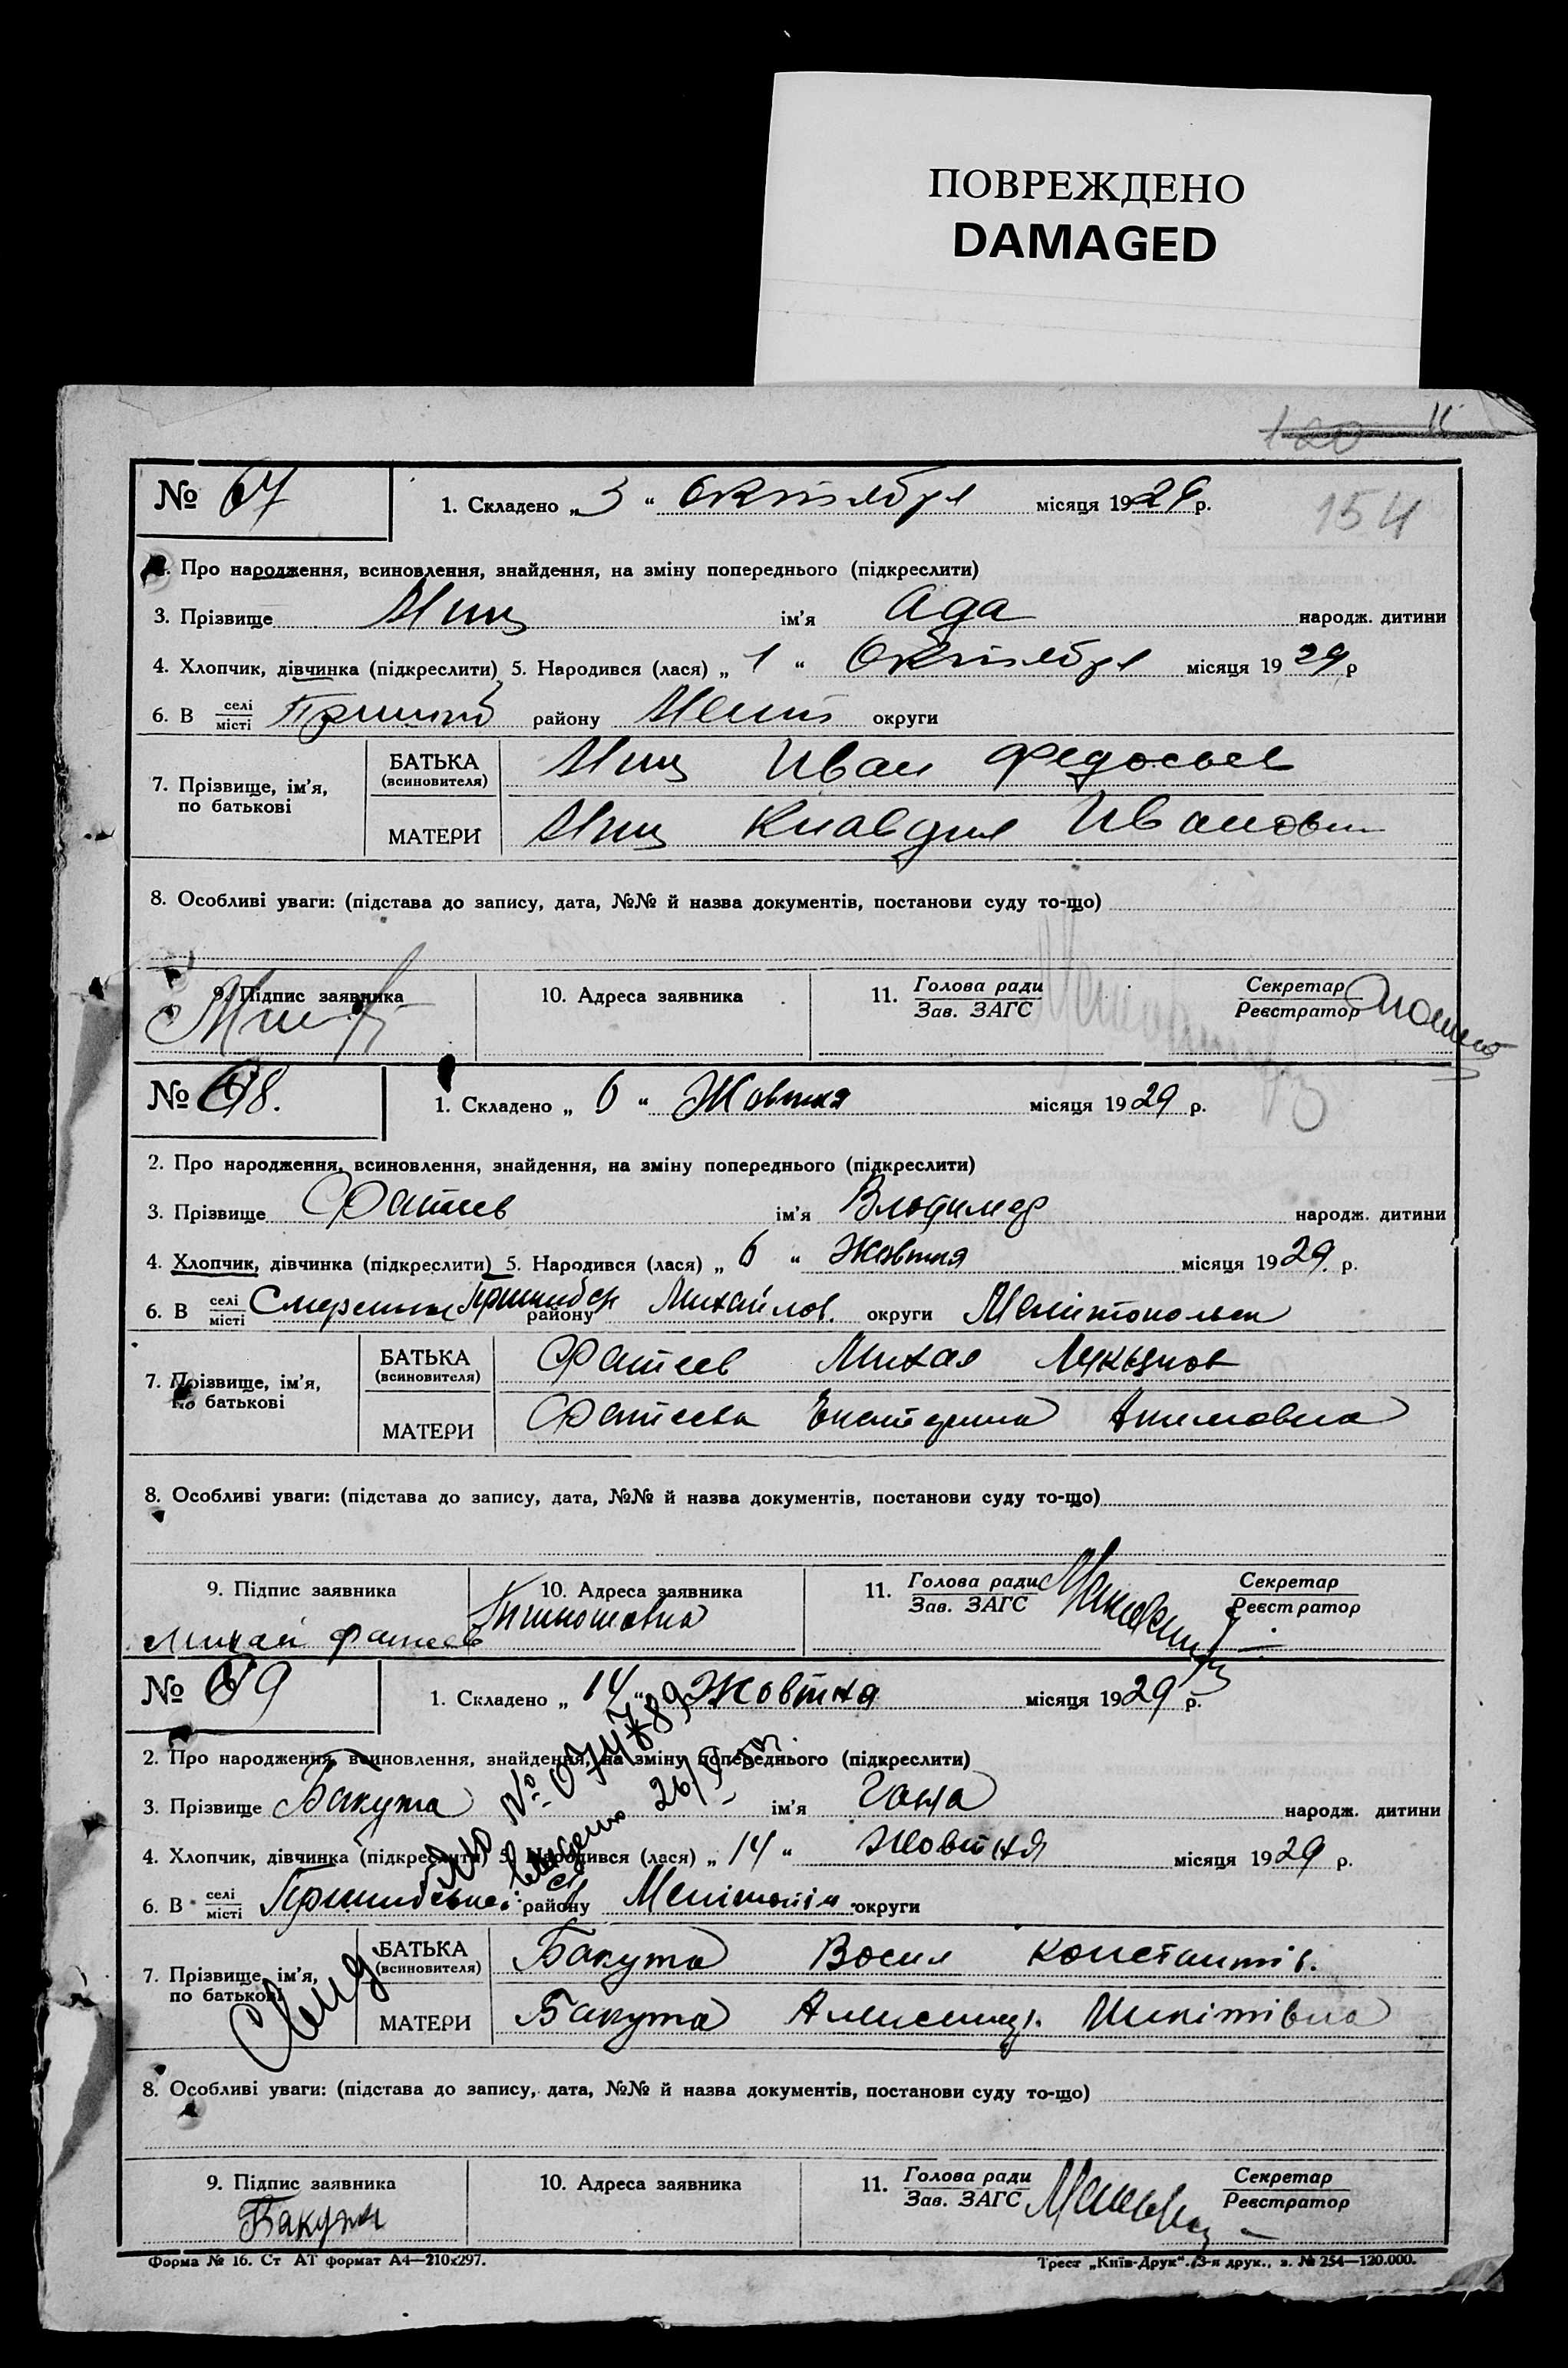 ПОВРЕЖДЕНО
DAMAGED
120
154
№ 67
1. Складено „3“ Октября місяця 1929 р.
2. Про народження, всиновлення, знайдення, на зміну попереднього (підкреслити)
3. Прізвище ім'я Ада народж. дитини
4. Хлопчик, дівчинка (підкреслити) 5. Народився (лася) „1“ Октября місяця 1929 р
6. В селі місті Пришиб району Меліт округи
7. Прізвище, ім'я, по батькові
БАТЬКА (всиновителя) Иван Федосьев
МАТЕРИ Клавдия Ивановн
8. Особливі уваги: (підстава до запису, дата, №№ й назва документів, постанови суду то-що)
9. Підпис заявника
10. Адреса заявника
11. Голова ради Зав. ЗАГС
Секретар Реєстратор
№ 68.
1. Складено „6“ Жовтня місяця 1929 р.
2. Про народження, всиновлення, знайдення, на зміну попереднього (підкреслити)
3. Прізвище Фатеев ім'я Влодимер народж. дитини
4. Хлопчик, дівчинка (підкреслити) 5. Народився (лася) „6“ Жовтня місяця 1929. р.
6. В селі місті району Михайлов. округи Мелітопольск
7. Прізвище, ім'я, по батькові
БАТЬКА (всиновителя) Фатеев Михая Лукьянов
МАТЕРИ Фатеева Екатерина Акимовна
8. Особливі уваги: (підстава до запису, дата, №№ й назва документів, постанови суду то-що)
9. Підпис заявника Михай Фатеев
10. Адреса заявника Тимошовка
11. Голова ради Зав. ЗАГС
Секретар Реєстратор
№ 69
1. Складено „14“ Жовтня місяця 1929 р.
2. Про народження, всиновлення, знайдення, на зміну попереднього (підкреслити)
3. Прізвище Бакута ім'я Галя народж. дитини
4. Хлопчик, дівчинка (підкреслити) 5. Народився (лася) „14“ Жовтня місяця 1929 р.
6. В селі місті району округи
7. Прізвище, ім'я, по батькові
БАТЬКА (всиновителя) Бакута Восил Константів.
МАТЕРИ Бакута Микітівна
8. Особливі уваги: (підстава до запису, дата, №№ й назва документів, постанови суду то-що)
9. Підпис заявника Бакута
10. Адреса заявника
11. Голова ради Зав. ЗАГС
Секретар Реєстратор
Форма № 16. Ст АТ формат А4—210х297.
Трест „Київ-Друк“. 3-я друк., з. № 254—120.000.